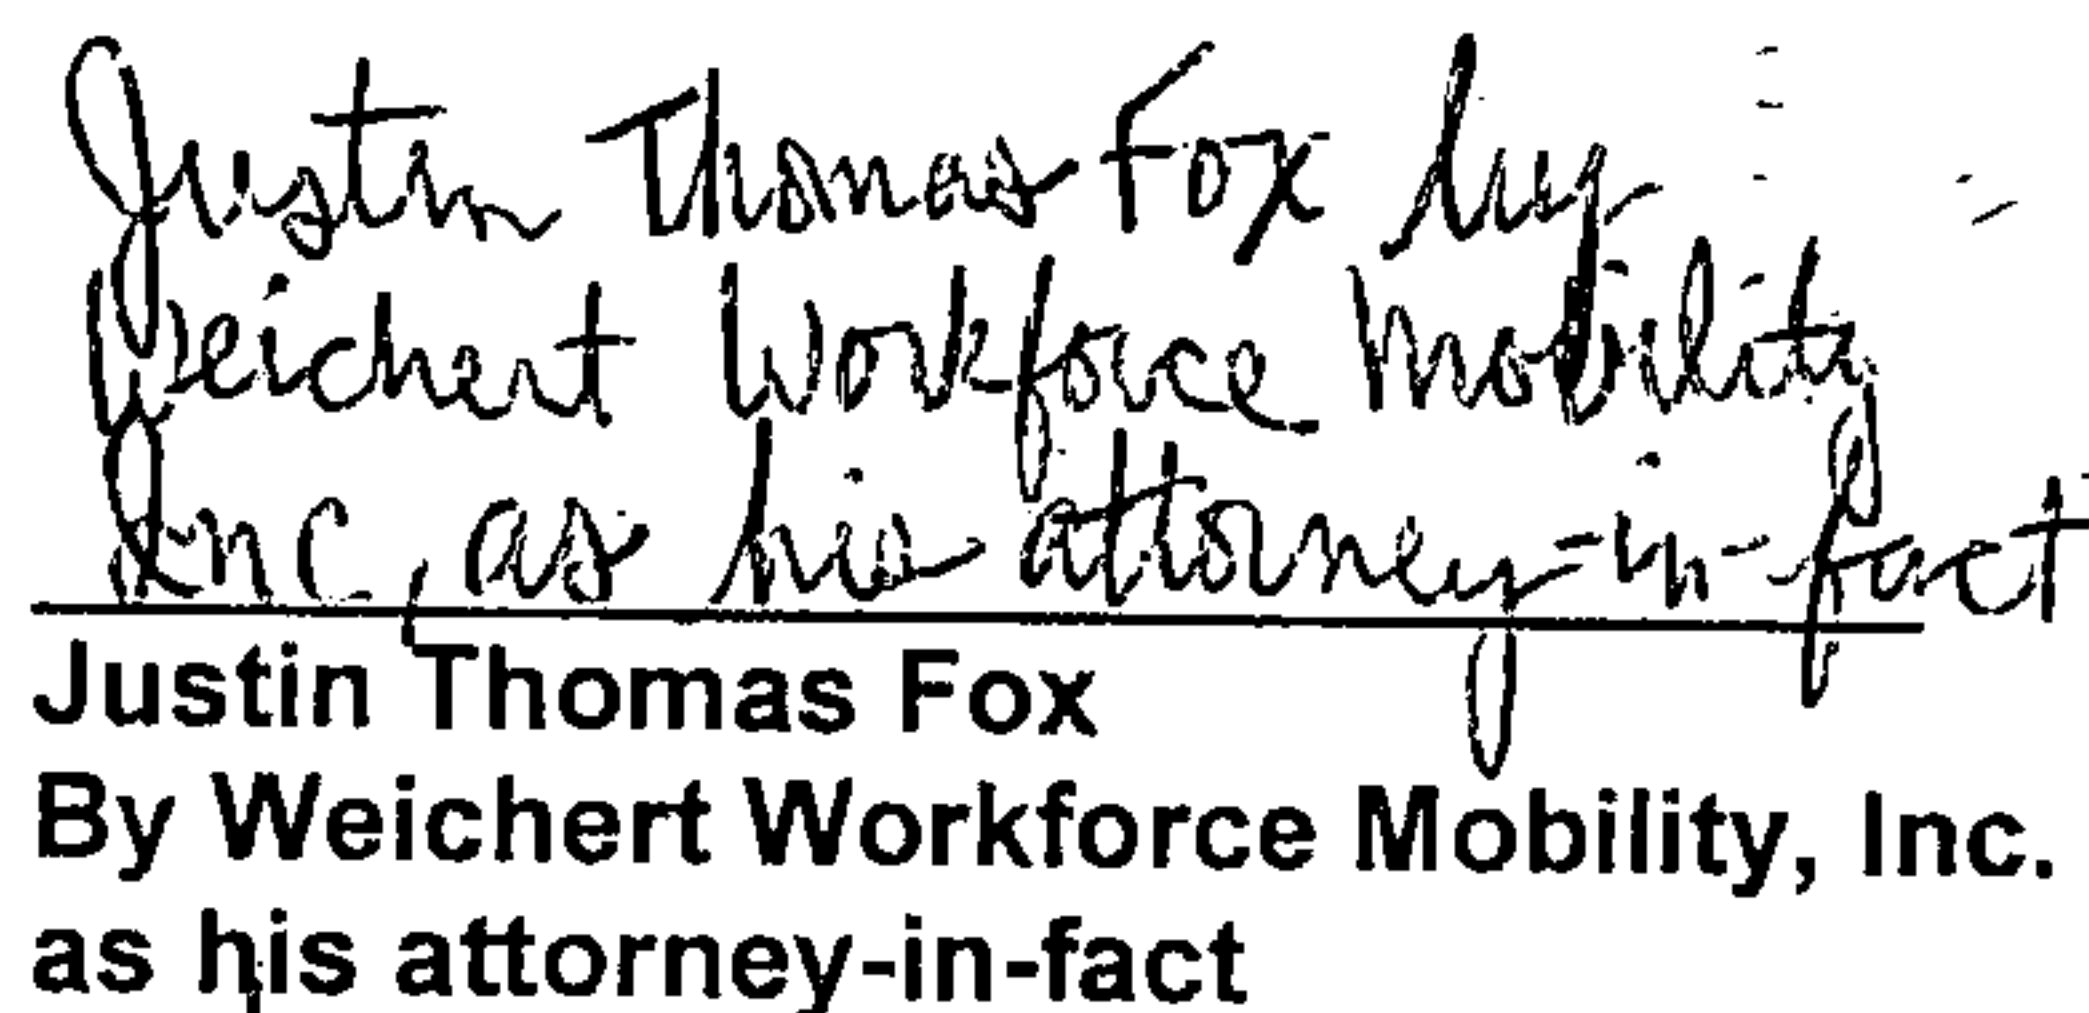 Justin Thomas Fox by
Weichert Workforce Mobility
Inc, as his attorney-in-fact
Justin Thomas Fox
By Weichert Workforce Mobility, Inc.
as his attorney-in-fact